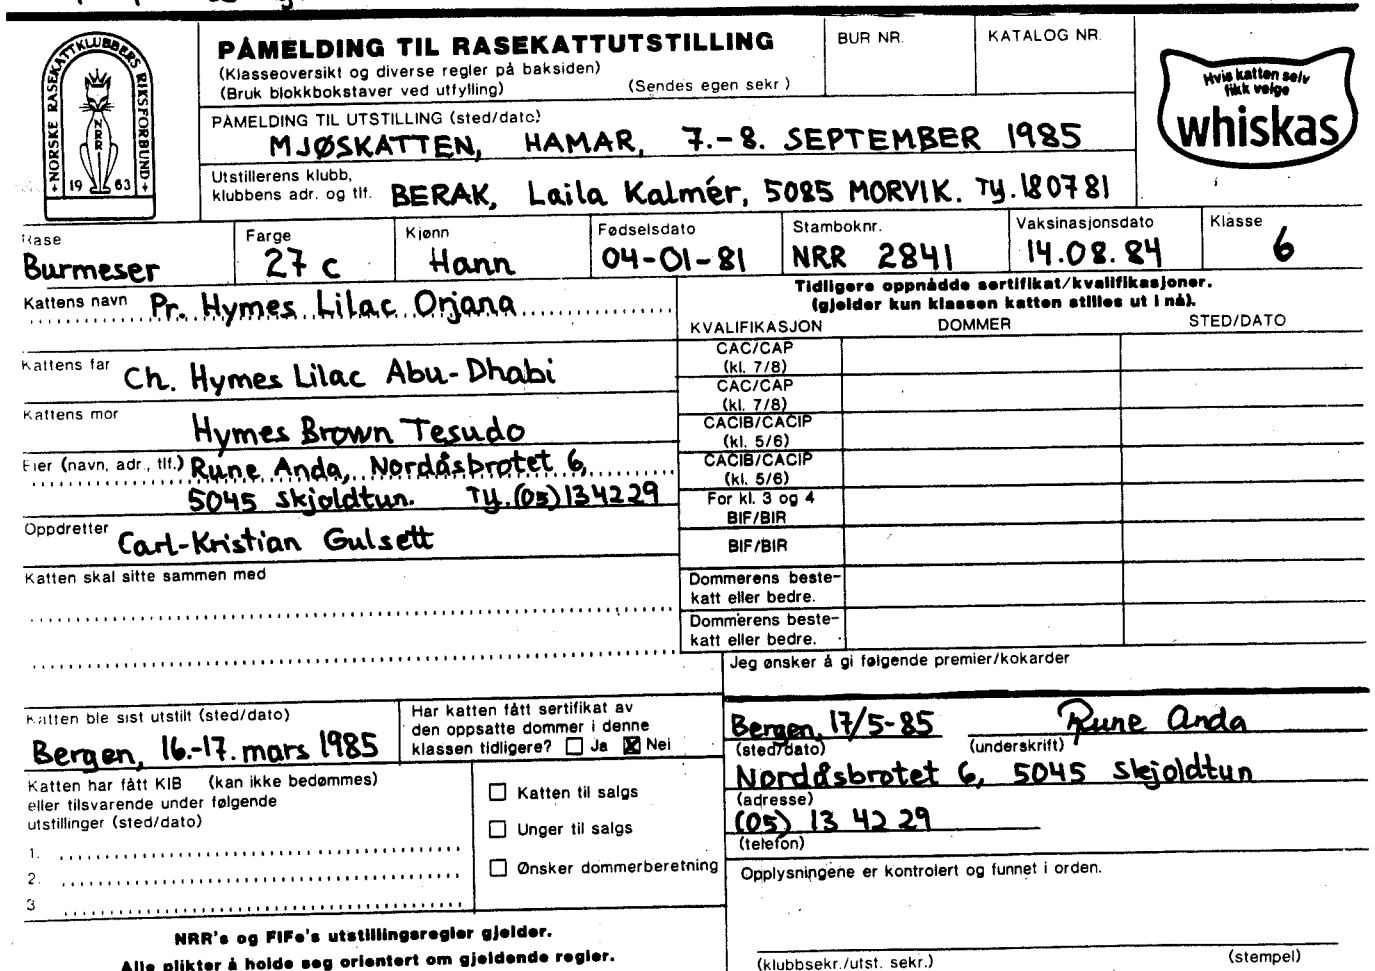 NORSKE RASEKATTKLUBBERS RIKSFORBUND
NRR
1963
PÅMELDING TIL RASEKATTUTSTILLING
(Klasseoversikt og diverse regler på baksiden)
(Bruk blokkbokstaver ved utfylling) (Sendes egen sekr)
BUR NR. KATALOG NR.
Hvis katten selv
fikk velge
whiskas
PÅMELDING TIL UTSTILLING (sted/dato)
MJØSKATTEN, HAMAR, 7.-8. SEPTEMBER 1985
Utstillerens klubb,
klubbens adr. og tlf. BERAK, Laila Kalmér, 5085 MORVIK. Tlf. 180781
Rase Farge Kjønn Fødselsdato Stamboknr. Vaksinasjonsdato Klasse
Burmeser 27 c Hann 04-01-81 NRR 2841 14.08.84 6
Kattens navn Pr. Hymes Lilac Orjana
Kattens far Ch. Hymes Lilac Abu-Dhabi
Kattens mor
Hymes Brown Tesudo
Eier (navn, adr., tlf.) Rune Anda, Nordåsbrotet 6,
5045 Skjoldtun. Tlf. (05) 134229
Oppdretter Carl-Kristian Gulsett
Katten skal sitte sammen med
Tidligere oppnådde sertifikat/kvalifikasjoner.
(gjelder kun klassen katten stilles ut i nå).
KVALIFIKASJON DOMMER STED/DATO
CAC/CAP
(kl. 7/8)
CAC/CAP
(kl. 7/8)
CACIB/CACIP
(kl. 5/6)
CACIB/CACIP
(kl. 5/6)
For kl. 3 og 4
BIF/BIR
BIF/BIR
Dommerens beste-
katt eller bedre.
Dommerens beste-
katt eller bedre.
Jeg ønsker å gi følgende premier/kokarder
Katten ble sist utstilt (sted/dato)
Bergen, 16.-17. mars 1985
Har katten fått sertifikat av
den oppsatte dommer i denne
klassen tidligere? Ja Nei
Katten har fått KIB (kan ikke bedømmes)
eller tilsvarende under følgende
utstillinger (sted/dato)
1.
2.
3
Katten til salgs
Unger til salgs
Ønsker dommerberetning
Bergen, 17/5-85 Rune Anda
(sted/dato) (underskrift)
Nordåsbrotet 6, 5045 Skjoldtun
(adresse)
(05) 13 42 29
(telefon)
Opplysningene er kontrolert og funnet i orden.
(klubbsekr./utst. sekr.) (stempel)
NRR's og FIFe's utstillingsregler gjelder.
Alle plikter å holde seg orientert om gjeldende regler.